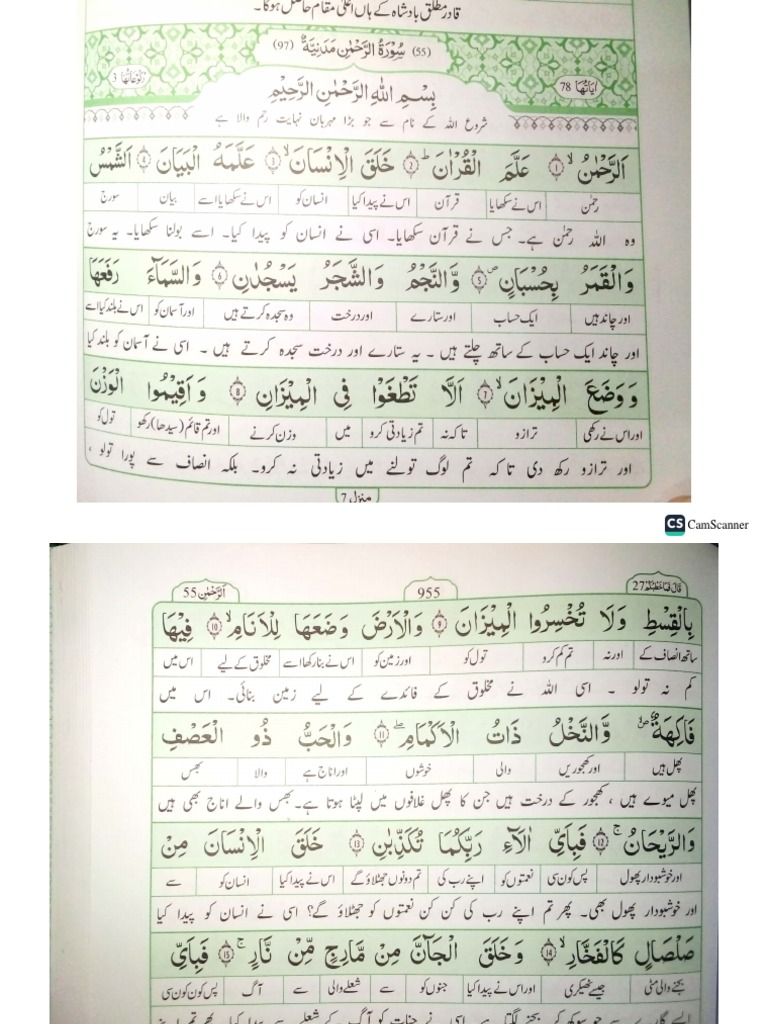 قادر مطلق بادشاہ کے ہاں اعلیٰ مقام حاصل ہوگا۔
(55) سُوْرَةُ الرَّحْمٰنِ مَدَنِيَّةٌ (97)
اٰيَاتُهَا 78
رُكُوْعَاتُهَا 3
بِسْمِ اللّٰهِ الرَّحْمٰنِ الرَّحِيْمِ
شروع اللہ کے نام سے جو بڑا مہربان نہایت رحم والا ہے
اَلرَّحْمٰنُ ۙ﴿1﴾ عَلَّمَ الْقُرْاٰنَ ؕ﴿2﴾ خَلَقَ الْاِنْسَانَ ۙ﴿3﴾ عَلَّمَهُ الْبَيَانَ ﴿4﴾ اَلشَّمْسُ
رحمٰن اس نے سکھایا قرآن اس نے پیدا کیا انسان کو اس نے سکھایا اسے بیان سورج
وہ اللہ رحمٰن ہے۔ جس نے قرآن سکھایا۔ اسی نے انسان کو پیدا کیا۔ اسے بولنا سکھایا۔ یہ سورج
وَالْقَمَرُ بِحُسْبَانٍ ۪﴿5﴾ وَّالنَّجْمُ وَالشَّجَرُ يَسْجُدٰنِ ﴿6﴾ وَالسَّمَآءَ رَفَعَهَا
اور چاند ہیں ایک حساب اور ستارے اور درخت وہ سجدہ کرتے ہیں اور آسمان کو اس نے بلند کیا اسے
اور چاند ایک حساب کے ساتھ چلتے ہیں۔ یہ ستارے اور درخت سجدہ کرتے ہیں۔ اسی نے آسمان کو بلند کیا
وَوَضَعَ الْمِيْزَانَ ۙ﴿7﴾ اَلَّا تَطْغَوْا فِى الْمِيْزَانِ ﴿8﴾ وَاَقِيْمُوا الْوَزْنَ
اور اس نے رکھی ترازو تاکہ نہ تم زیادتی کرو میں وزن کرنے اور تم قائم (سیدھا) رکھو تول کو
اور ترازو رکھ دی تاکہ تم لوگ تولنے میں زیادتی نہ کرو۔ بلکہ انصاف سے پورا تولو،
منزل 7
CS CamScanner
اَلرَّحْمٰن 55
955
قَالَ فَمَا خَطْبُكُمْ 27
بِالْقِسْطِ وَلَا تُخْسِرُوا الْمِيْزَانَ ﴿9﴾ وَالْاَرْضَ وَضَعَهَا لِلْاَنَامِ ۙ﴿10﴾ فِيْهَا
ساتھ انصاف کے اور نہ تم کم کرو تول کو اور زمین کو اس نے بنا رکھا اسے مخلوق کے لیے اس میں
کم نہ تولو۔ اسی اللہ نے مخلوق کے فائدے کے لیے زمین بنائی۔ اس میں
فَاكِهَةٌ ۪ۙ وَّالنَّخْلُ ذَاتُ الْاَكْمَامِ ۖ﴿11﴾ وَالْحَبُّ ذُو الْعَصْفِ
پھل ہیں اور کھجوریں والی خوشوں اور اناج ہے والا بھس
پھل میوے ہیں، کھجور کے درخت ہیں جن کا پھل غلافوں میں لپٹا ہوتا ہے۔ بھس والے اناج بھی ہیں
وَالرَّيْحَانُ ۚ﴿12﴾ فَبِاَىِّ اٰلَآءِ رَبِّكُمَا تُكَذِّبٰنِ ﴿13﴾ خَلَقَ الْاِنْسَانَ مِنْ
اور خوشبودار پھول پس کون سی نعمتوں کو اپنے رب کی تم دونوں جھٹلاؤ گے اس نے پیدا کیا انسان کو سے
اور خوشبودار پھول بھی۔ پھر تم اپنے رب کی کن کن نعمتوں کو جھٹلاؤ گے؟ اسی نے انسان کو پیدا کیا
صَلْصَالٍ كَالْفَخَّارِ ۙ﴿14﴾ وَخَلَقَ الْجَآنَّ مِنْ مَّارِجٍ مِّنْ نَّارٍ ۚ﴿15﴾ فَبِاَىِّ
بجنے والی مٹی جیسے ٹھیکری اور اس نے پیدا کیا جنوں کو سے شعلے والی سے آگ پس کون کون سی